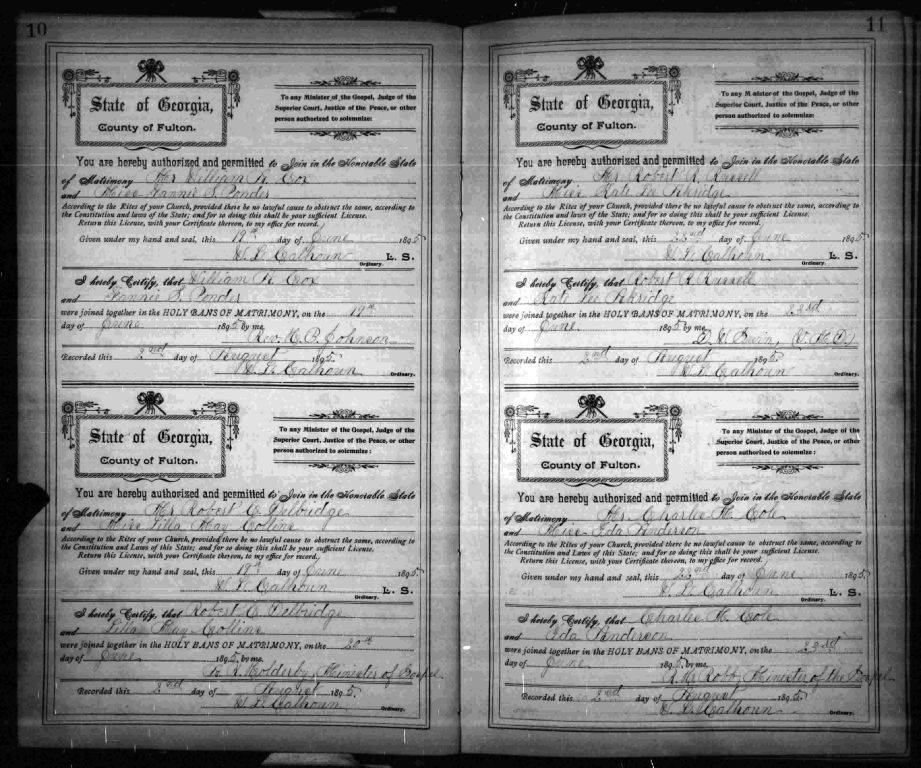 10
State of Georgia,
County of Fulton.
To any Minister of the Gospel, Judge of the
Superior Court, Justice of the Peace, or other
person authorized to solemnize:
You are hereby authorized and permitted to Join in the Honorable State
of Matrimony Mr William H. Cox
and Miss Fannie S. Ponder
According to the Rites of your Church, provided there be no lawful cause to obstruct the same, according to
the Constitution and laws of the State; and for so doing this shall be your sufficient License.
Return this License, with your Certificate thereon, to my office for record.
Given under my hand and seal, this 19th day of June 1895
W. L. Calhoun L. S.
Ordinary.
I hereby Certify, that William H. Cox
and Fannie S. Ponder
were joined together in the HOLY BANS OF MATRIMONY, on the 19th
day of June 1895 by me,
Rev. H. P. Johnson
Recorded this 2nd day of August 1895.
W. L. Calhoun
Ordinary.
State of Georgia,
County of Fulton.
To any Minister of the Gospel, Judge of the
Superior Court, Justice of the Peace, or other
person authorized to solemnize:
You are hereby authorized and permitted to Join in the Honorable State
of Matrimony Mr Robert C. Delbridge
and Miss Lilia May Colline
According to the Rites of your Church, provided there be no lawful cause to obstruct the same, according to
the Constitution and Laws of this State; and for so doing this shall be your sufficient License.
Return this License, with your Certificate thereon, to my office for record.
Given under my hand and seal, this 19th day of June 1895
W. L. Calhoun L. S.
Ordinary.
I hereby Certify, that Robert C. Delbridge
and Lilia May Colline
were joined together in the HOLY BANS OF MATRIMONY, on the 20th
day of June 1895, by me,
R. Holderby, Minister of Gospel
Recorded this 2nd day of August 1895.
W. L. Calhoun
Ordinary.
11
State of Georgia,
County of Fulton.
To any Minister of the Gospel, Judge of the
Superior Court, Justice of the Peace, or other
person authorized to solemnize:
You are hereby authorized and permitted to Join in the Honorable State
of Matrimony Mr Robert R. Russell
and Miss Kate Lee
According to the Rites of your Church, provided there be no lawful cause to obstruct the same, according to
the Constitution and laws of the State; and for so doing this shall be your sufficient License.
Return this License, with your Certificate thereon, to my office for record.
Given under my hand and seal, this 22nd day of June 1895
W. L. Calhoun L. S.
Ordinary.
I hereby Certify, that Robert R. Russell
and Kate Lee
were joined together in the HOLY BANS OF MATRIMONY, on the 23rd
day of June 1895 by me,
Recorded this 2nd day of August 1895
W. L. Calhoun
Ordinary.
State of Georgia,
County of Fulton.
To any Minister of the Gospel, Judge of the
Superior Court, Justice of the Peace, or other
person authorized to solemnize:
You are hereby authorized and permitted to Join in the Honorable State
of Matrimony Mr. Charlie H. Cole
and Miss Ida Anderson
According to the Rites of your Church, provided there be no lawful cause to obstruct the same, according to
the Constitution and laws of this State; and for so doing this shall be your sufficient License.
Return this License, with your Certificate thereon, to my office for record.
Given under my hand and seal, this 22nd day of June 1895
W. L. Calhoun L. S.
Ordinary.
I hereby Certify, that Charlie H. Cole
and Ida Anderson
were joined together in the HOLY BANS OF MATRIMONY, on the 23rd
day of June 1895 by me,
Robb, Minister of the Gospel
Recorded this 2nd day of August 1895.
W. L. Calhoun
Ordinary.